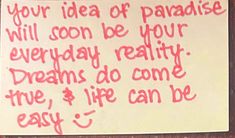 your idea of paradise
will soon be your
everyday reality.
Dreams do come
true, & life can be
easy :)